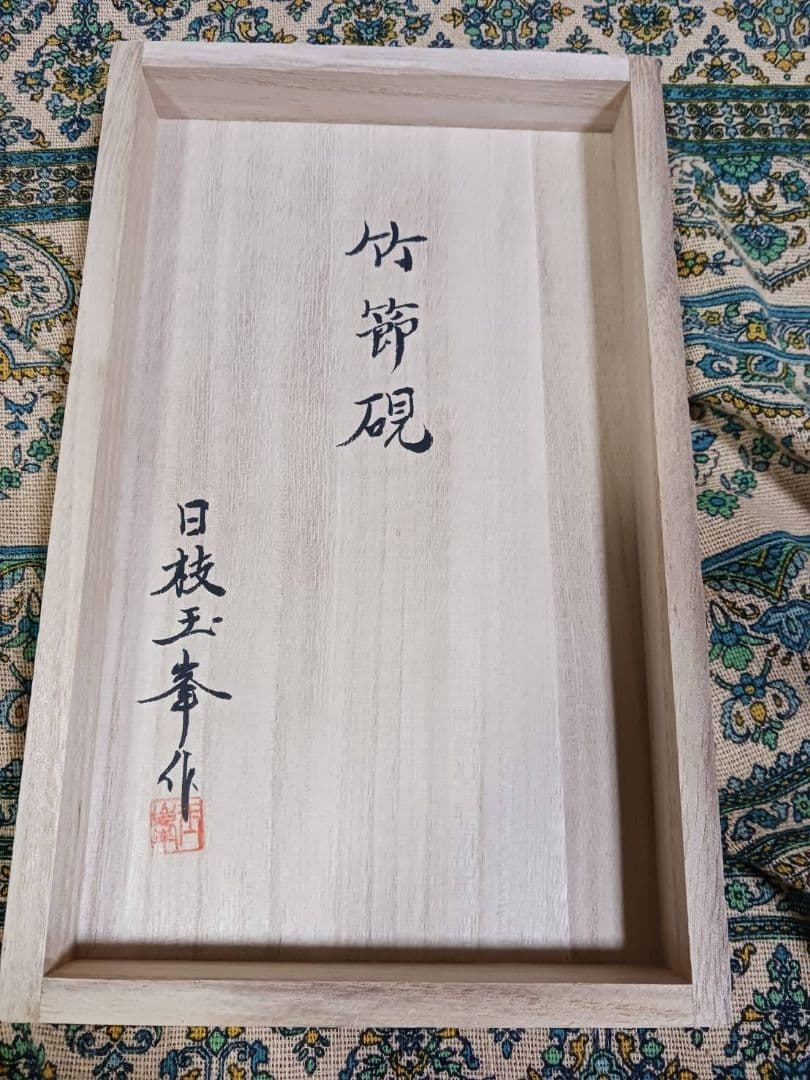 竹節硯
日枝玉峯作